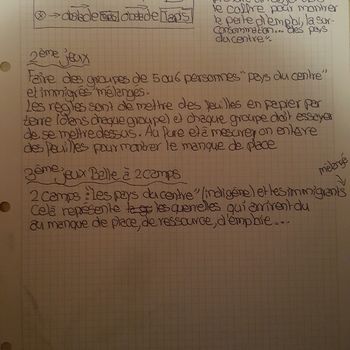 le coffre pour montrer
→ obstacle obstacle Tapis
la perte d'emploi, la sur-
consommation... des pays
du centre".
2ème jeux
Faire des groupes de 5 ou 6 personnes "pays du centre"
et immigrés mélangés.
Les règles sont de mettre des feuilles en papier par
terre (dans chaque groupe) et chaque groupe doit essayer
de se mettre dessus. Au fure et à mesure, on enlève
des feuilles pour montrer le manque de place
3ème jeux Balle à 2 camps
mélangé
2 camps: "Les pays du centre" (indigène) et les immigrants
Cela représente les querelles qui arrivent du
au manque de place, de ressource, d'emploie...